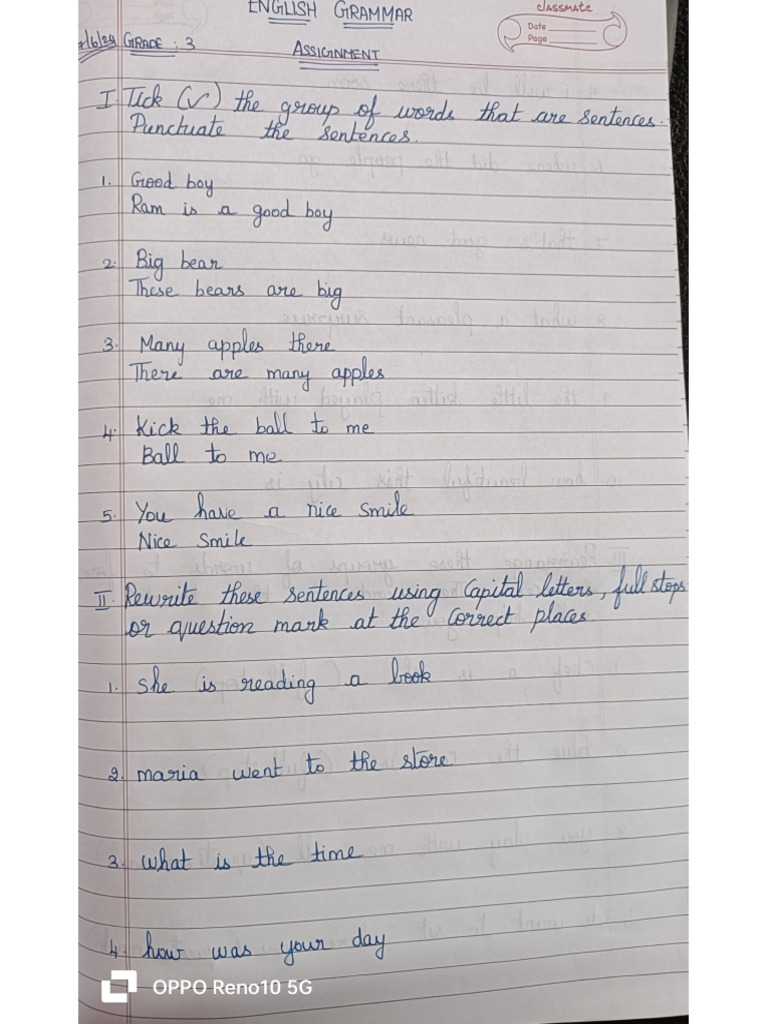 ENGLISH GRAMMAR
classmate
Date
Page
/6/24 GRADE : 3
ASSIGNMENT
I. Tick (✓) the group of words that are sentences.
Punctuate the sentences.
1. Good boy
Ram is a good boy
2. Big bear
These bears are big
3. Many apples there
There are many apples
4. Kick the ball to me
Ball to me
5. You have a nice smile
Nice Smile
II. Rewrite these sentences using Capital letters, full stops
or question mark at the correct places.
1. she is reading a book
2. maria went to the store
3. what is the time
4. how was your day
OPPO Reno10 5G